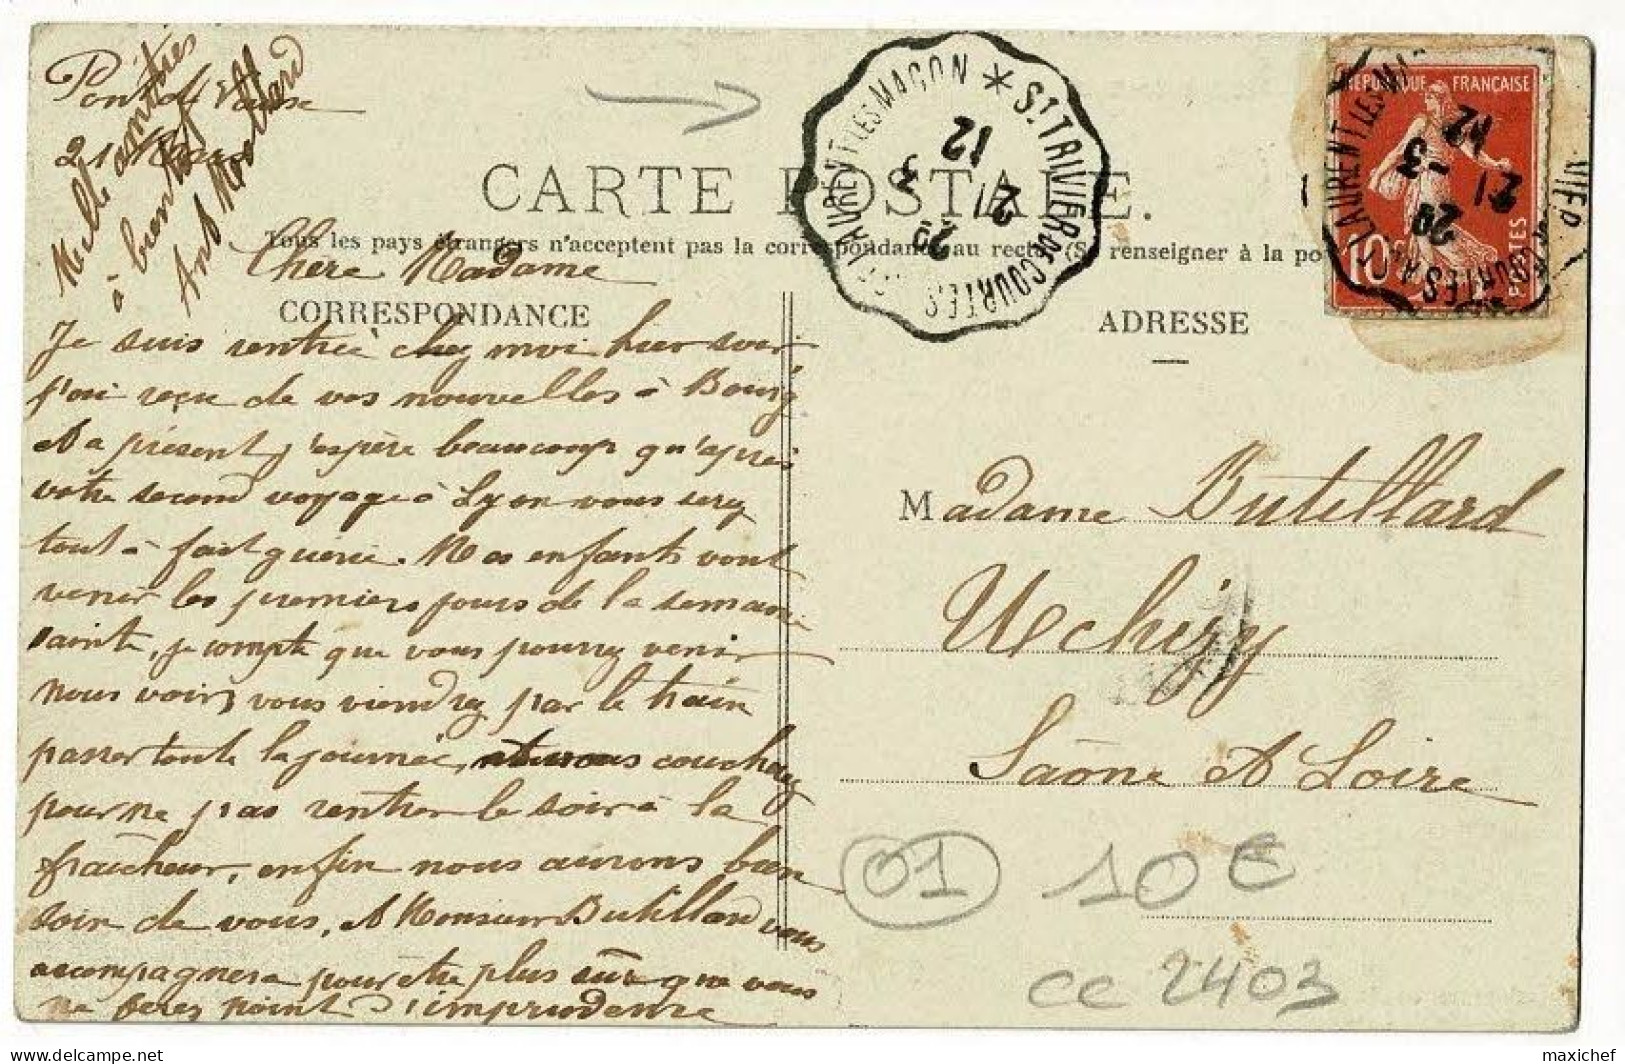 Pont de Vaux
21 Mars
Mille amitiés
à bientôt
Ant Mottard
CARTE POSTALE.
Tous les pays étrangers n'acceptent pas la correspondance au recto (Se renseigner à la po
Chère Madame
CORRESPONDANCE
Je suis rentrée chez moi hier soir
j'ai reçu de vos nouvelles à Bourg
A a présent j'espère beaucoup qu'après
votre second voyage à Lyon vous serez
tout à fait guérie. Mes enfants vont
venir les premiers jours de la semaine
sainte, je compte que vous pourrez venir
nous voir, vous viendrez par le train
passer toute la journée, vous coucherez
pour ne pas rentrer le soir à la
fraîcheur, enfin nous aurons bien
soin de vous, A Monsieur Butillard vous
accompagnera pour être plus sûr que vous
ne ferez point d'imprudense
ST LAURENT LES MACON * ST TRIVIER DE COURTES
2E
21
3
12
REPUBLIQUE FRANÇAISE
10
POSTES
LAURENT LES MA
COURTES A ST
21
-3
12
ADRESSE
Madame Butillard
Uchizy
Saône A Loire
01
10 €
CC 2403
delcampe.net
maxichef